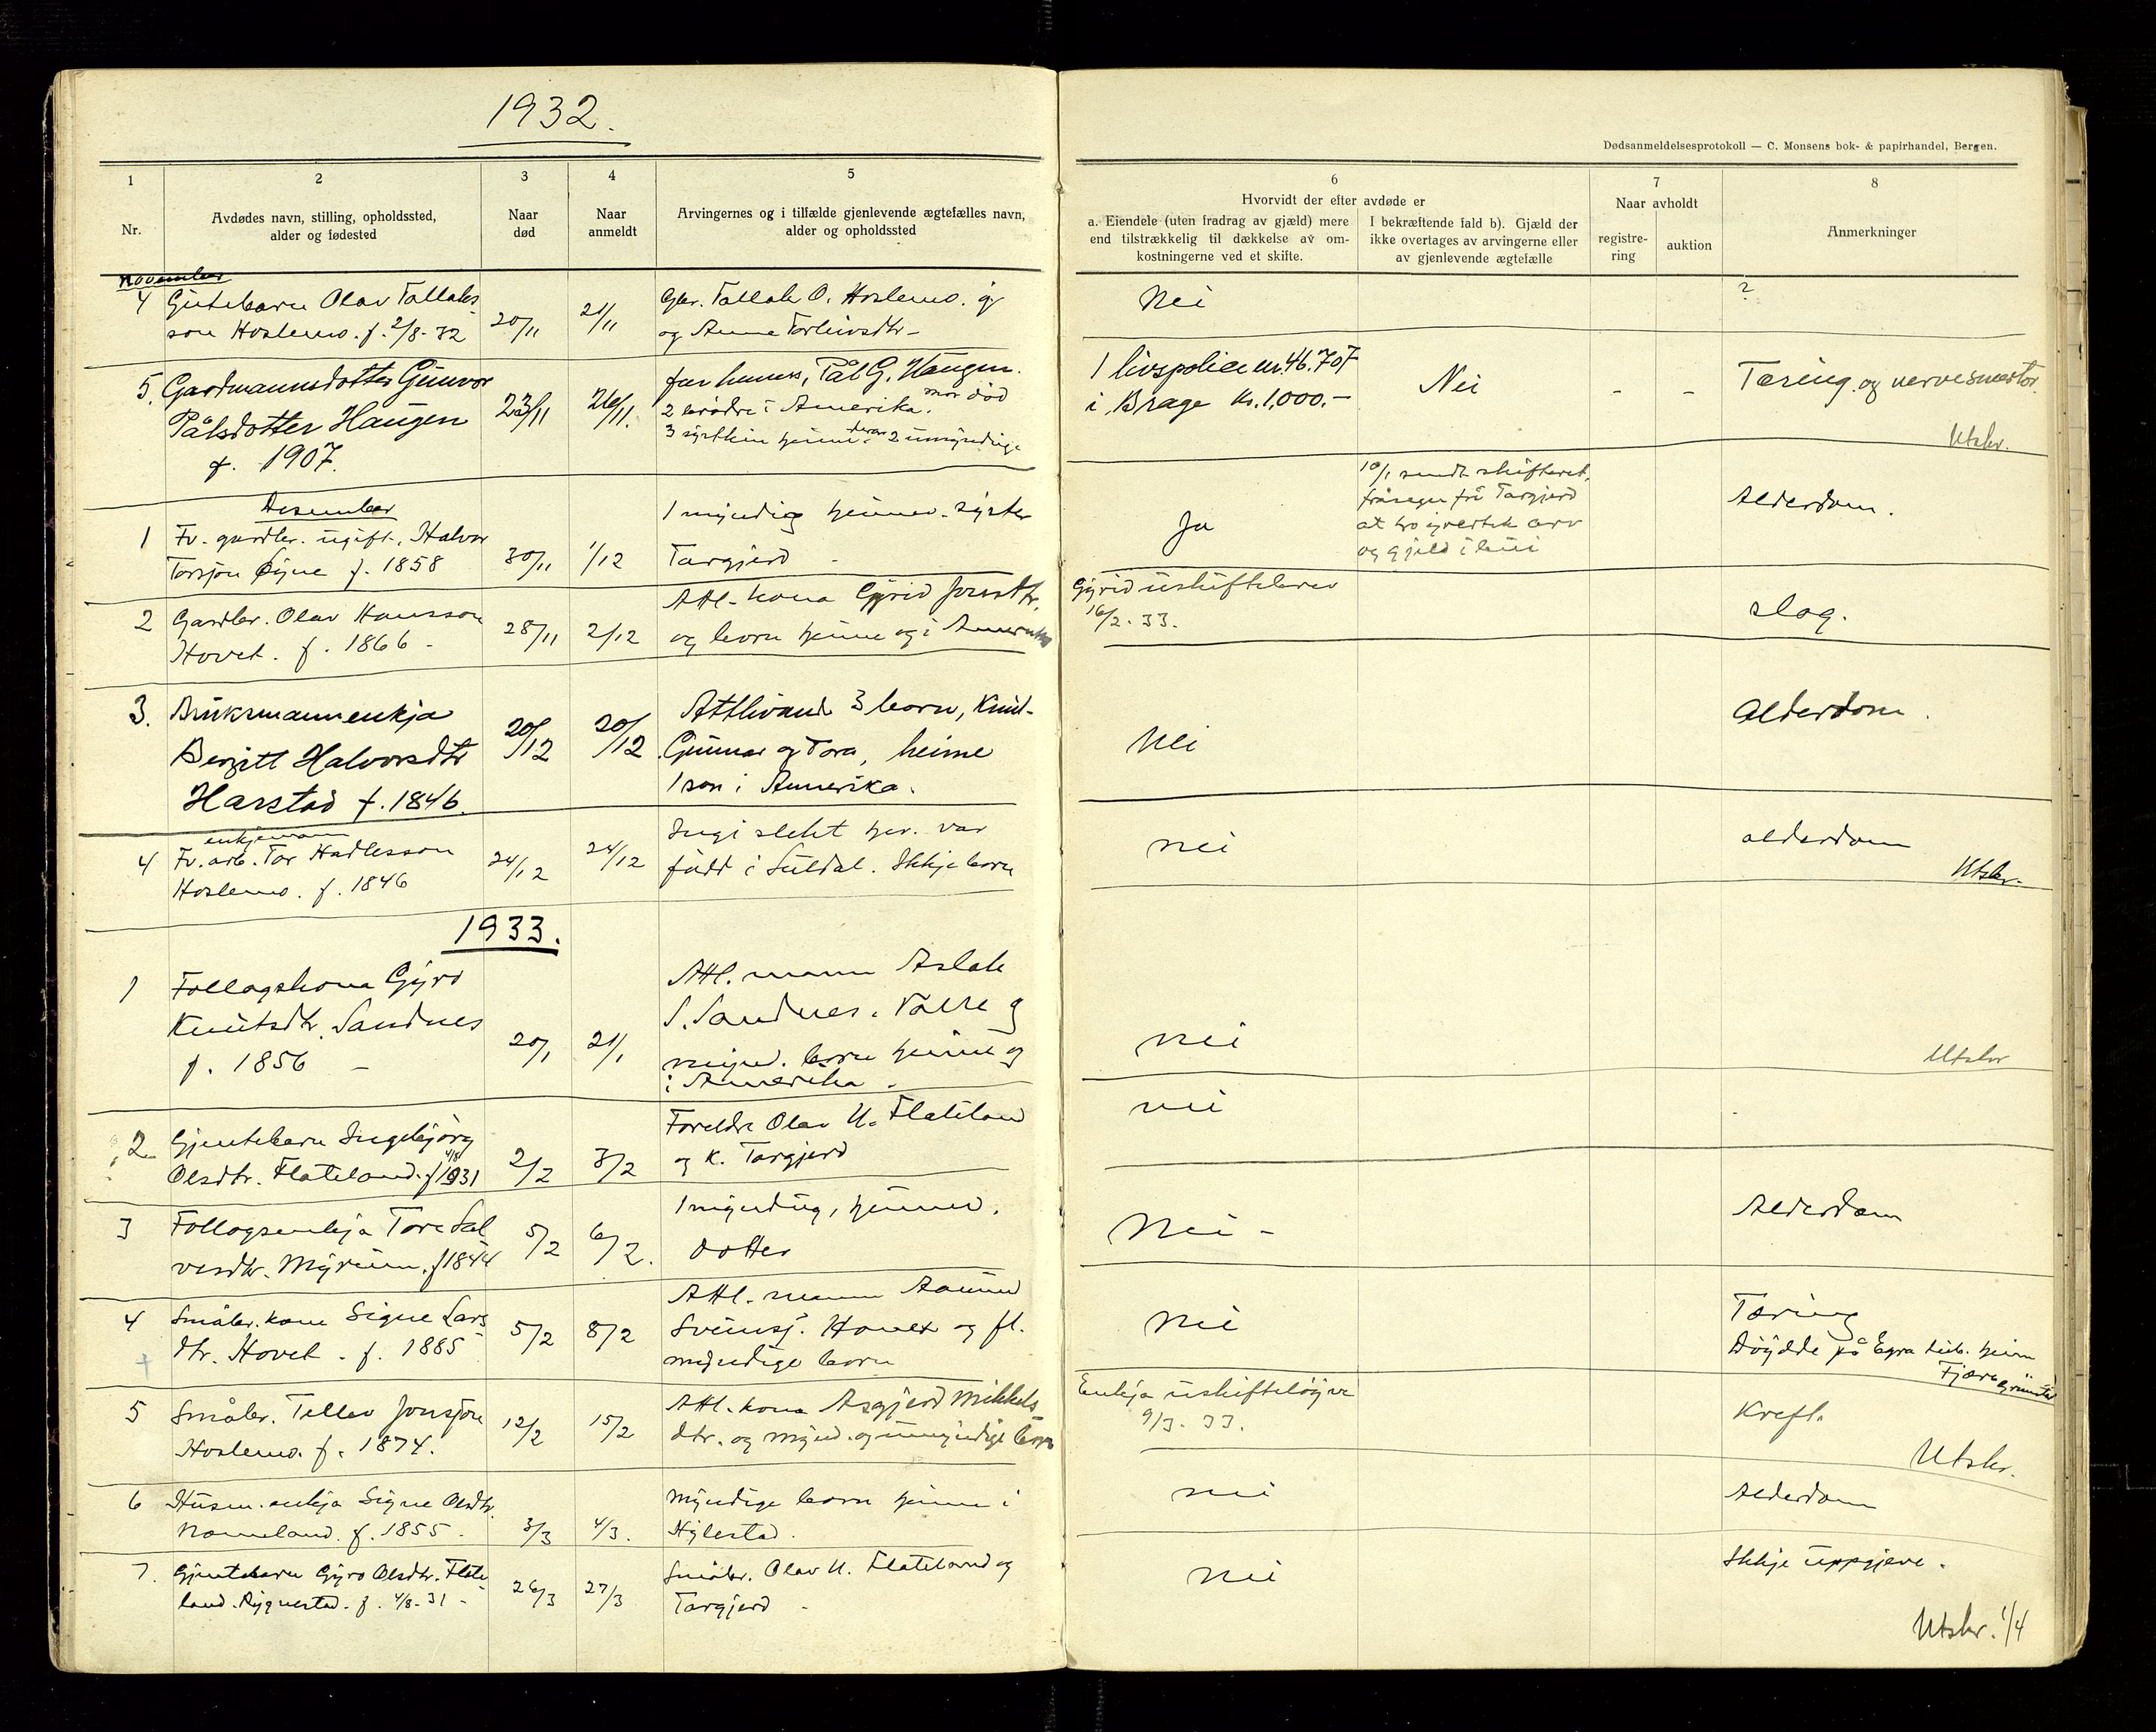 1932.
Dødsanmeldelsesprotokoll — C. Monsens bok- & papirhandel, Bergen.
1
Nr.
2
Avdødes navn, stilling, opholdssted,
alder og fødested
3
Naar
død
4
Naar
anmeldt
5
Arvingernes og i tilfælde gjenlevende ægtefælles navn,
alder og opholdssted
6
Hvorvidt der efter avdøde er
a. Eiendele (uten fradrag av gjæld) mere
end tilstrækkelig til dækkelse av om-
kostningerne ved et skifte.
I bekræftende fald b). Gjæld der
ikke overtages av arvingerne eller
av gjenlevende ægtefælle
7
Naar avholdt
registre-
ring
auktion
8
Anmerkninger
November
4 Gutebarn Olav Tallaks
son Hoslemo. f. 2/8-32
20/11
21/11
Gbr. Tallak O. Hoslemo.
og Anne Torleivsdtr-
Nei
?
5. Gardmannsdotter Gunvor
Pålsdotter Haugen
f. 1907.
23/11
26/11.
far hennes, Pål G. Haugen.
mor død
2 brødre i Amerika.
3 sysken heime derav 2 umyndige
1 livspolice nr. 46.707
i Brage Kr. 1,000.-
Nei
-
-
Tæring. og
Utskr.
Desember
1 Fv. gardbr. ugift, Halvor
Torsson f. 1858
30/11
1/12
1 myndig heimev. syster
Targjerd -
Ja
10/1 sendt skifteret,
frå Targjerd
at ho arv
og gjeld i bui
Alderdom.
2 Gardbr. Olav Hansson
Hovet. f. 1866 -
28/11
2/12
Attl. kona Gyrid Jonsdtr.
og born heime og i Amerika
Gyrid uskiftebrev
16/2. 33.
slag.
3. Bruksmannenkja
Bergitt Halvorsdtr
Harstad f. 1846.
20/12
20/12
Attlivande 3 born, Knut-
Gunnar og Tora, heime
1 son i Amerika.
Nei
Alderdom.
4
enkjemann
Fv. arb. Tor Hadlesson
Hoslemo. f. 1846
24/12
24/12
Ingi slekt her. var
fødd i Suldal. Ikkje born
nei
alderdom
Utskr.
1933.
1 Follagskona Gyro
Knutsdtr. Sandnes
f. 1856 -
20/1
21/1
Attl. mann Aslak
S. Sandnes. Valle og
mynd. born heime og
i Amerika -
nei
Utskr
2 Gjentebarn Ingebjørg
Olsdtr. Flateland. f 4/8 1931
2/2
3/2
Foreldre Olav U. Flateland
og K. Targjerd
nei
3 Follogsenkja Tore Sal
vesdtr. Myrum. f 1844
5/2
6/2.
1 myndug, heimev.
dotter
Nei -
Alderdom
4 Småbr. kone Signe Lars
dtr. Hovet. f. 1885
5/2
8/2
Attl. mann Aamund
Sveinss. Hovet og fl.
myndige born
nei
Tæring
Døydde på Egra tub. heim
Fjære Grimstad
5 Småbr. Tellev Jonsson
Hoslemo. f. 1874.
12/2
15/2
Attl. kona Asgjerd Mikkels
dtr. og mynd. og umyndige born
Enkja uskifteløyve
9/3. 33.
Kreft.
Utskr.
6 Husm. enkja Signe Olsdtr.
Nomeland. f. 1855 -
3/3
4/3.
Myndige born heime i
Hylestad.
nei
Alderdom
7. Gjentebarn Gyro Olsdtr. Flate
land. Rygnestad. f. 4/8-31 -
26/3
27/3
Småbr. Olav U. Flateland og
Targjerd -
nei
Ikkje uppgjeve.
Utskr. 1/4